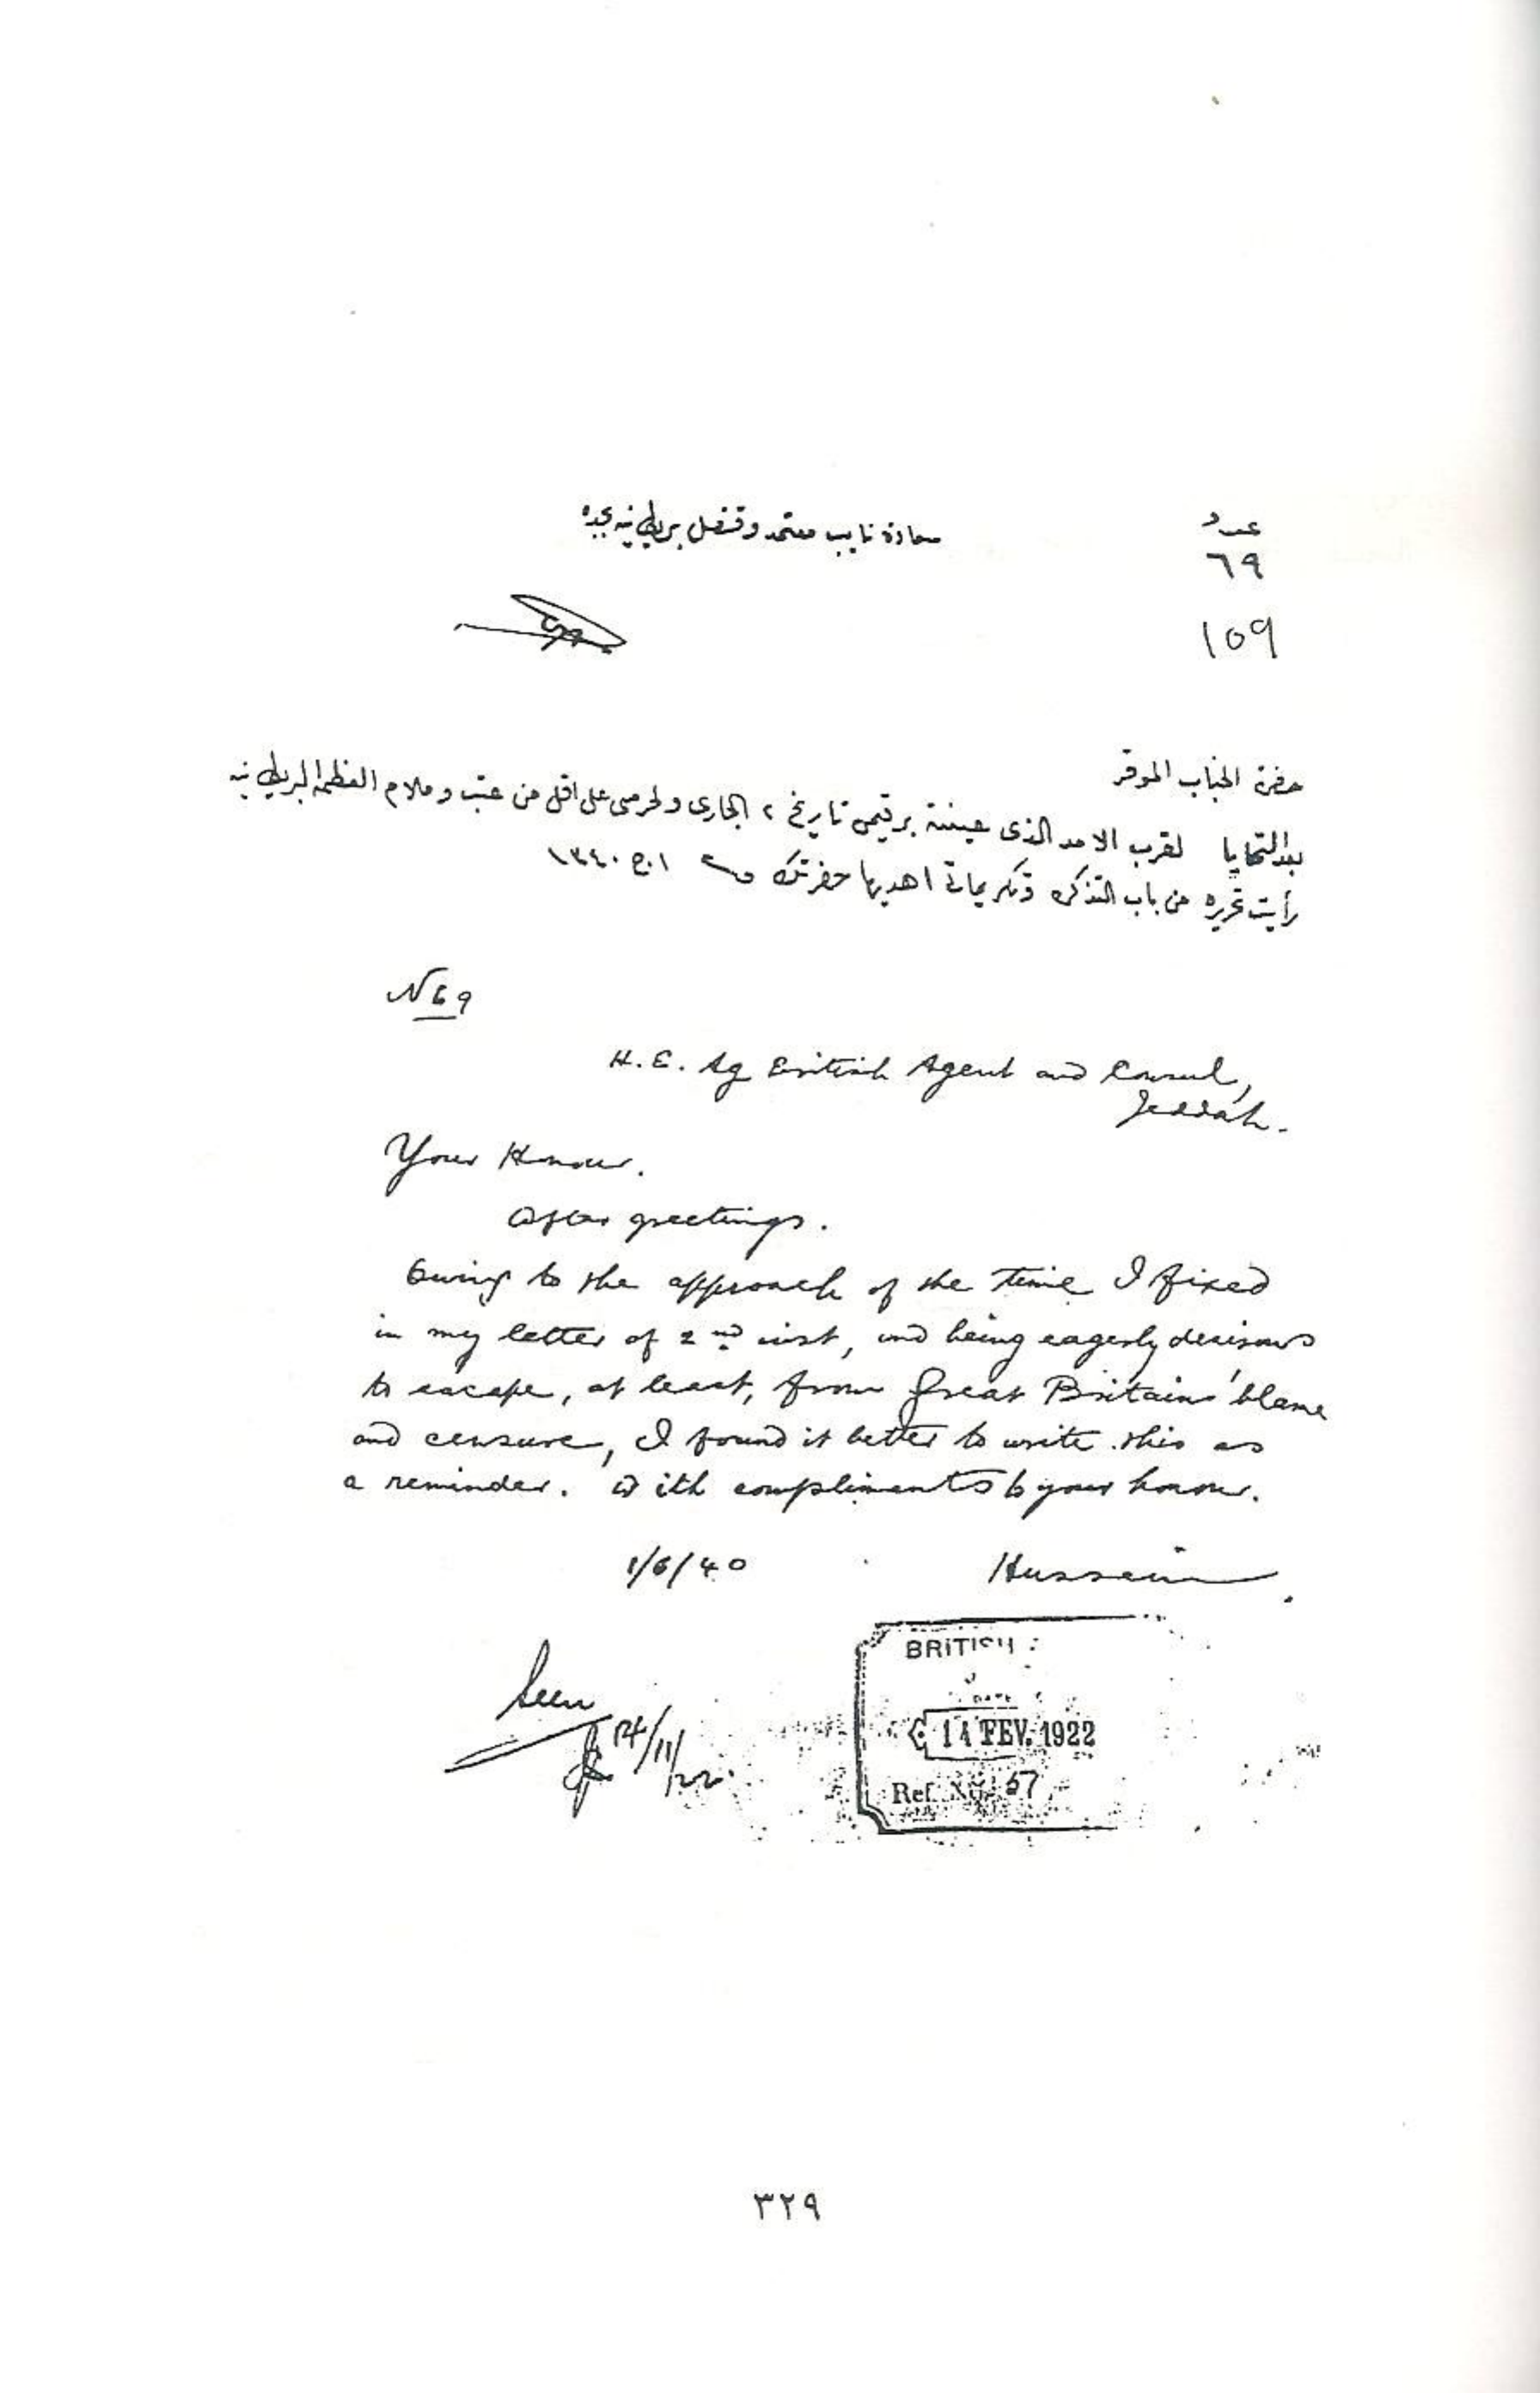 عدد
سعادة نايب معتمد وقنصل بريطانيه بجده
٦٩
١٥٩
حضرة الجناب الموقر
بعد التحايا لقرب الامد الذى عينته برقيمى تاريخ ٢ الجارى ولحرصى على اقل من عتب وملام العظمة البريطانيه
رأيت تحريره من باب التذكره وتكريماتى اهديها حضرتك ١٣٤٠
N 69
H. E. Ag British Agent and Consul,
Jeddah.
Your Honour.
After greetings.
Owing to the approach of the time I fixed
in my letter of 2nd inst, and being eagerly desirous
to escape, at least, from Great Britains' blame
and censure, I found it better to write this as
a reminder. With compliments to your honour.
1/6/40 Hussein
Seen
14/11/22
BRITISH
DATE
14 FEV. 1922
Ref. No. 57
٣٢٩